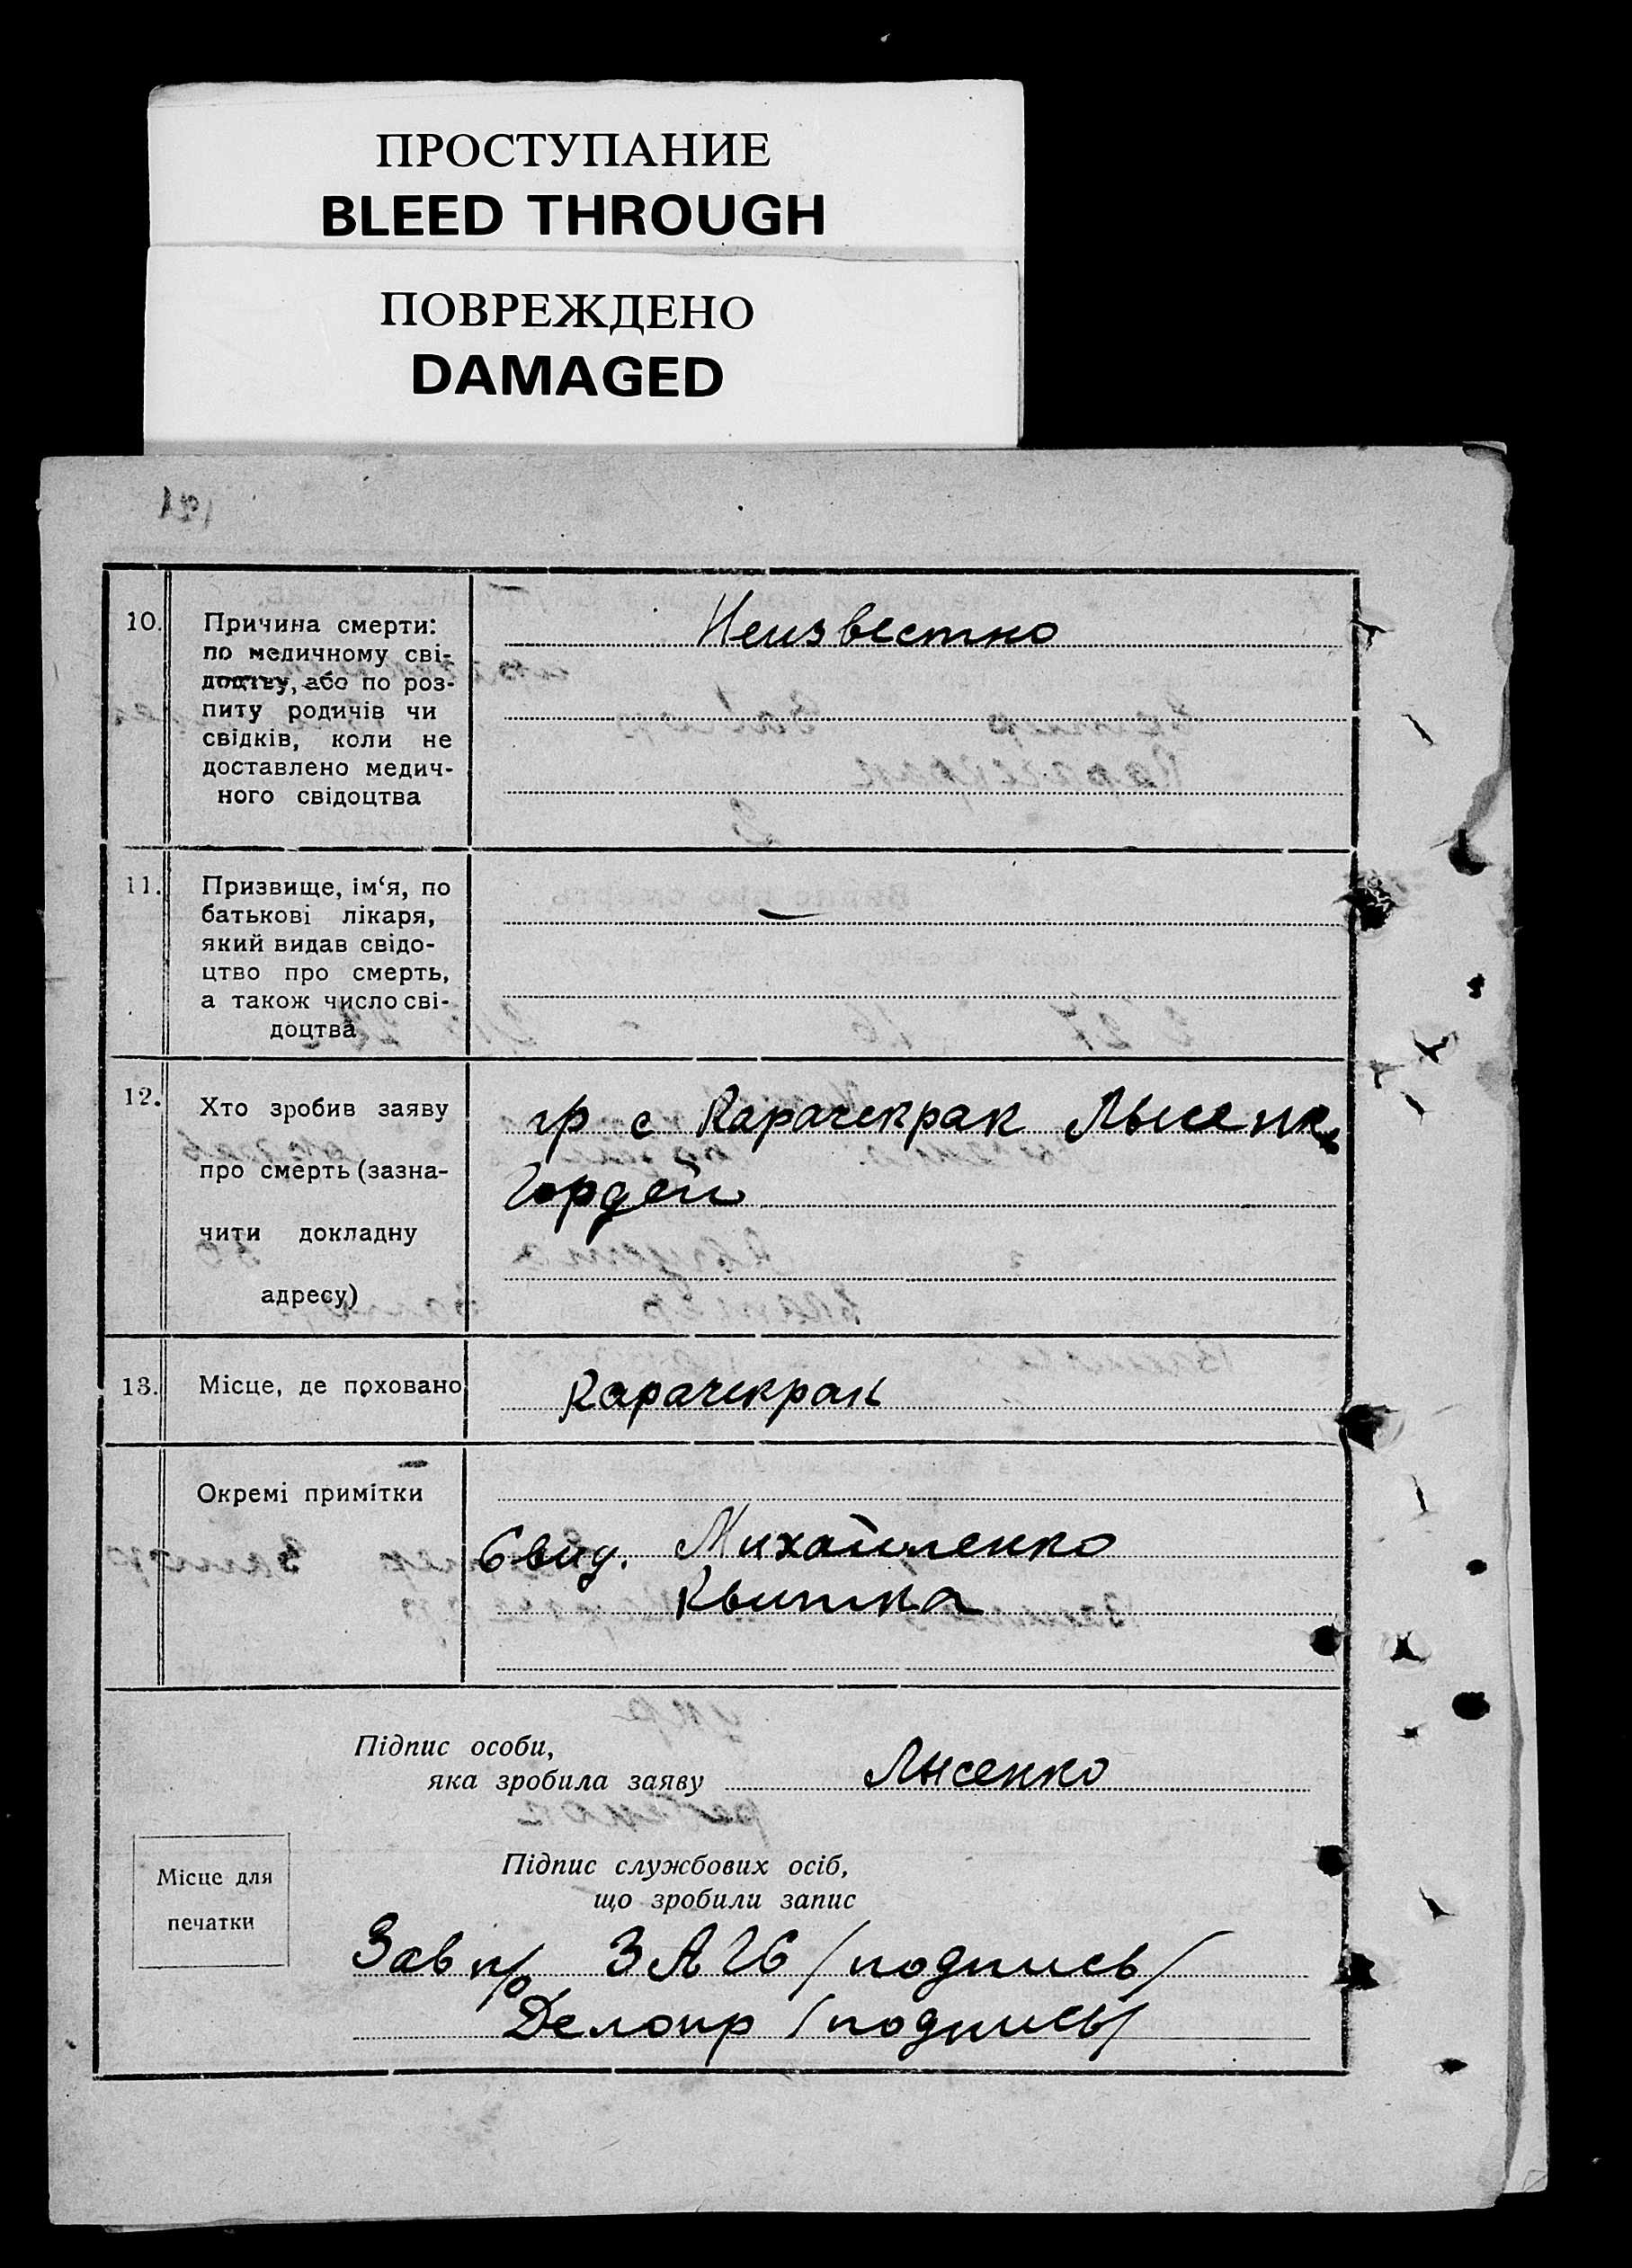 ПРОСТУПАНИЕ
BLEED THROUGH
ПОВРЕЖДЕНО
DAMAGED
10. Причина смерти:
по медичному сві-
доцтву, або по роз-
питу родичів чи
свідків, коли не
доставлено медич-
ного свідоцтва
Неизвестно
11. Призвище, ім‘я, по
батькові лікаря,
який видав свідо-
цтво про смерть,
а також число сві-
доцтва
—
12. Хто зробив заяву
про смерть (зазна-
чити докладну
адресу)
гр с Карачекрак Лысенко
Гордей
13. Місце, де поховано
Карачекрак
Окремі примітки
Свид. Михайленко
Квитка
Підпис особи,
яка зробила заяву Лысенко
Місце для
печатки
Підпис службових осіб,
що зробили запис
Зав п/о ЗАГС /подпись/
Делопр /подпись/